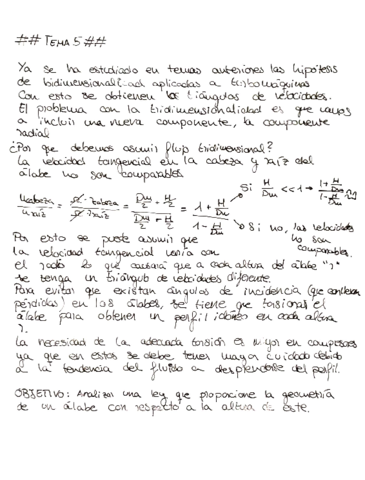 ## TEMA 5 ##
Ya se ha estudiado en temas anteriores las hipótesis
de bidimensionalidad aplicadas a turbomáquinas
Con esto se obtienen los triángulos de velocidades.
El problema con la tridimensionalidad es que vamos
a incluir una nueva componente, la componente
radial
¿Por que debemos asumir flujo tridimensional?
La velocidad tangencial en la cabeza y raíz del
álabe no son comparables
Ucabeza / Uraíz = Ω · rcabeza / Ω · rraíz = (Dm/2 + H/2) / (Dm/2 - H/2) = (1 + H/Dm) / (1 - H/Dm)
Si H/Dm << 1 → (1 + H/Dm) / (1 - H/Dm) → 1
Si no, las velocidades
no son
comparables.
Por esto se puede asumir que
la velocidad tangencial varía con
el radio lo que causará que a cada altura del álabe "r"
se tenga un triángulo de velocidades diferente
Para evitar que existan ángulos de incidencia (que conllevan
pérdidas) en los álabes, se tiene que torsionar el
álabe para obtener un perfil idóneo en cada altura
r.
La necesidad de la adecuada torsión es mayor en compresores
ya que en estos se debe tener mayor cuidado debido
a la tendencia del fluido a desprenderse del perfil.
OBJETIVO: Analizar una ley que proporcione la geometría
de un álabe con respecto a la altura de este.